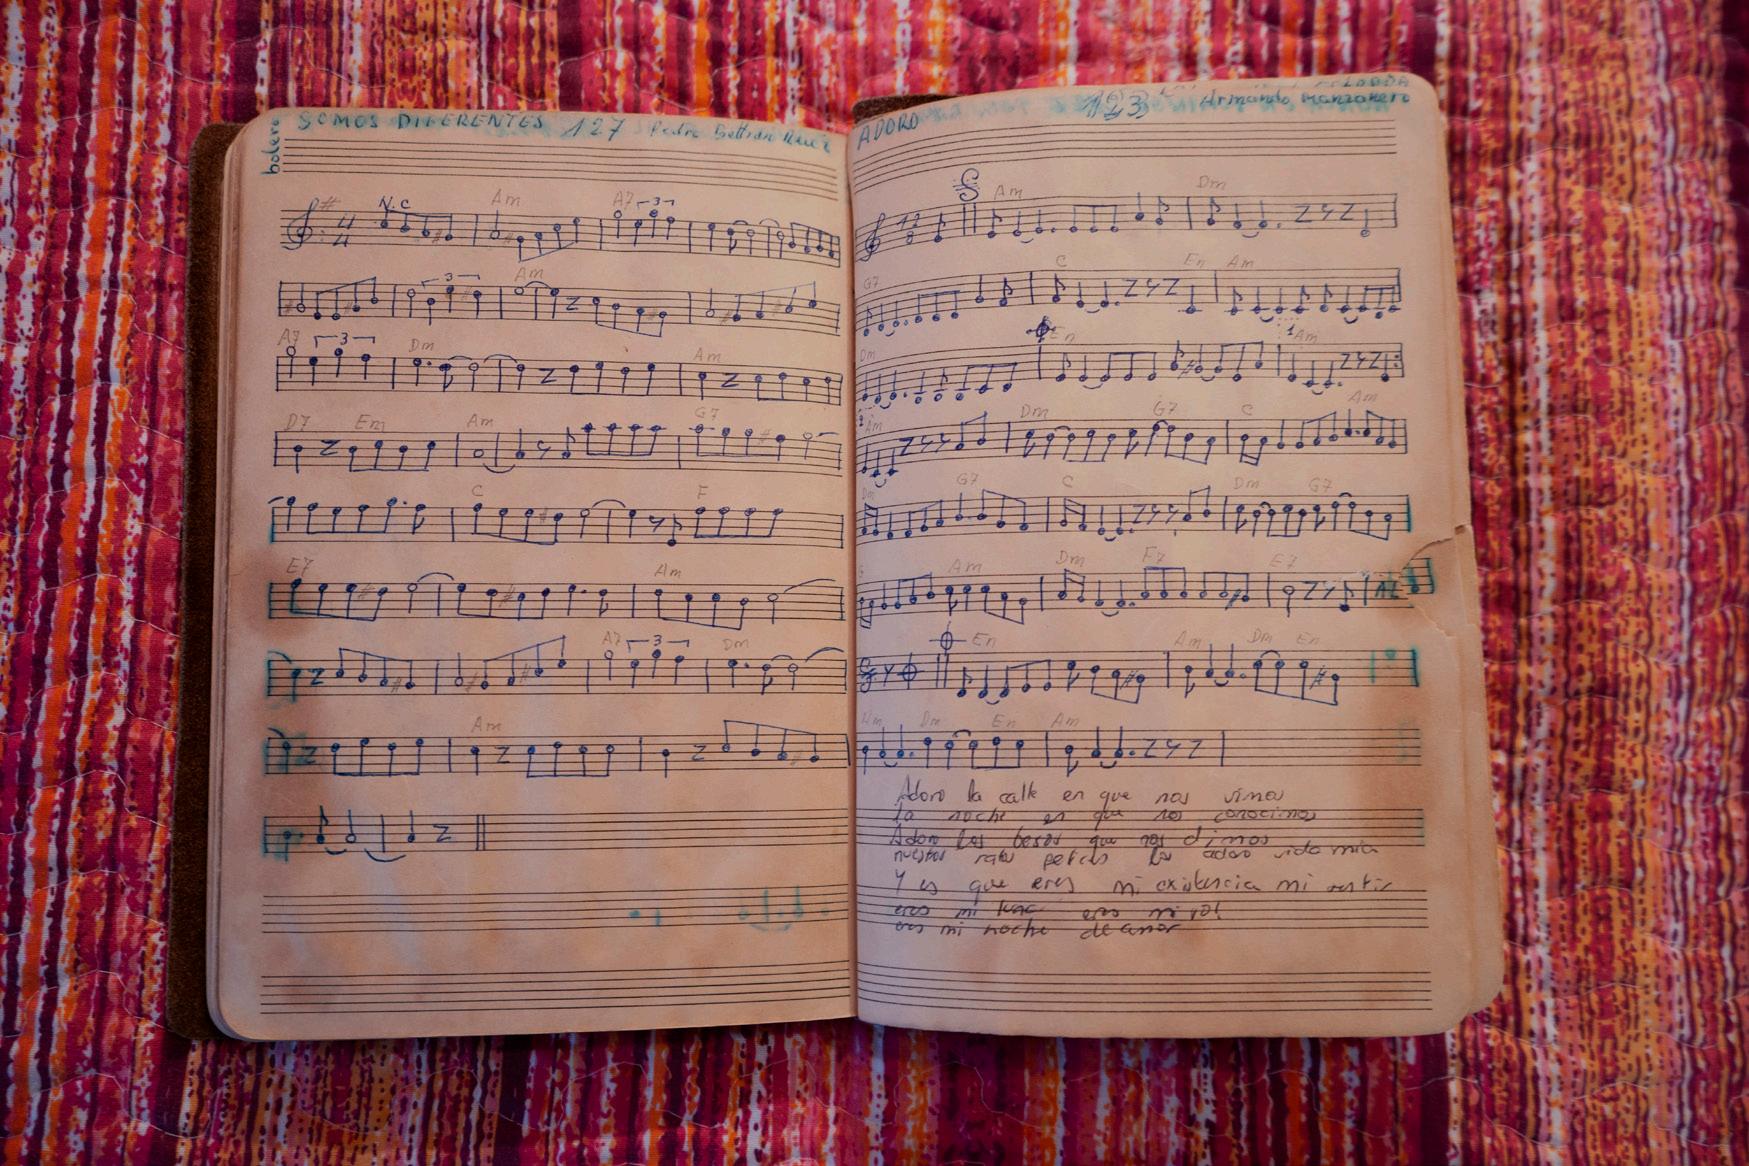 bolero
SOMOS DIFERENTES 127 Pedro Beltran Ruiz
N.C Am A7 3
3 Am
A7 3 Dm Am
D7 Em Am G7
C F
E7 Am
A7 3 Dm
Am
ADORO 123 Armando Manzanero
Am Dm
G7 C Em Am
Dm Em 1 Am
2 Am Dm G7 C Am
Dm G7 C Dm G7
G Am Dm F7 E7
Em Am Dm Em
Am Dm Em Am
Adoro la calle en que nos vimos
la noche en que nos conocimos
Adoro los besos que nos dimos
nuestros ratos los adoro vida mia
Y es que eres mi existencia mi sentir
eres mi luna eres mi sol
eres mi noche de amor